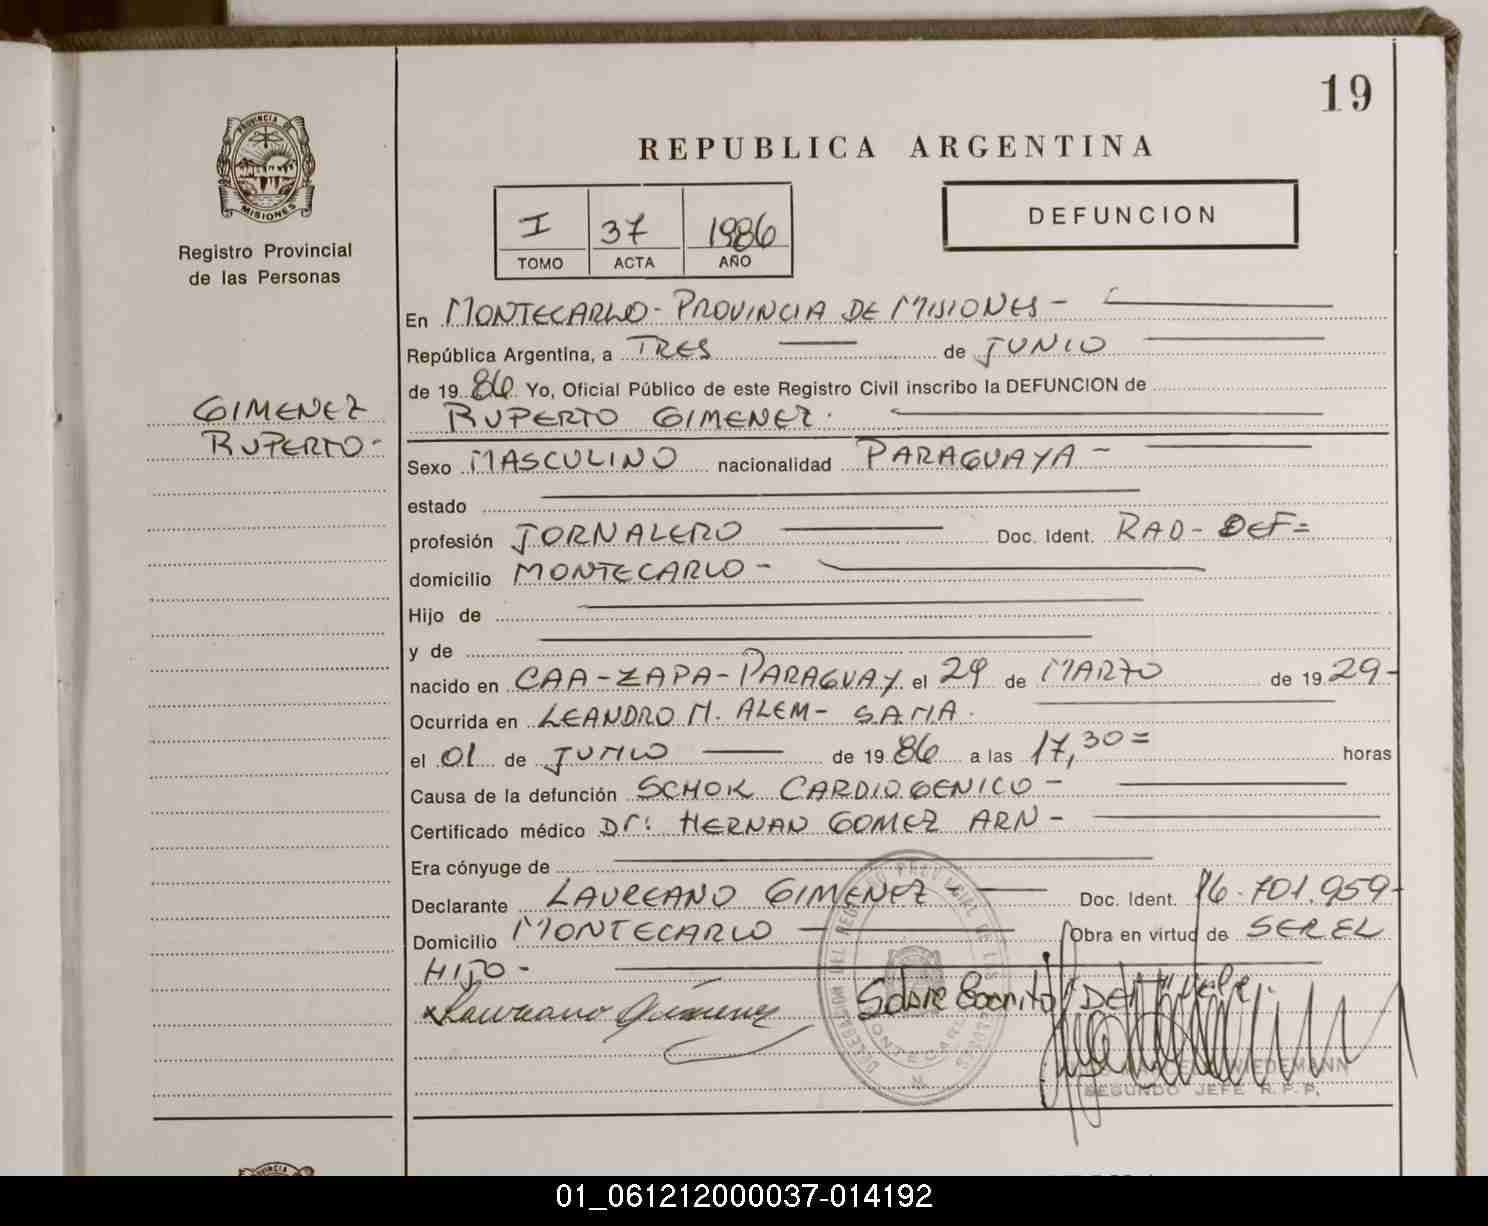 19
PROVINCIA DE
MISIONES
REPUBLICA ARGENTINA
Registro Provincial
de las Personas
I 37 1986
TOMO ACTA AÑO
DEFUNCION
GIMENEZ
RUPERTO-
En MONTECARLO- PROVINCIA DE MISIONES-
República Argentina, a TRES de JUNIO
de 19 86 Yo, Oficial Público de este Registro Civil inscribo la DEFUNCION de
RUPERTO GIMENEZ.
Sexo MASCULINO nacionalidad PARAGUAYA-
estado
profesión JORNALERO Doc. Ident. RAD- DEF=
domicilio MONTECARLO-
Hijo de
y de
nacido en CAA-ZAPA-PARAGUAY el 29 de MARZO de 19 29-
Ocurrida en LEANDRO N. ALEM- SAMA.
el 01 de JUNIO de 19 86 a las 17,30= horas
Causa de la defunción SCHOK CARDIOGENICO-
Certificado médico Dr: HERNAN GOMEZ ARN-
Era cónyuge de
Declarante LAUREANO GIMENEZ- Doc. Ident. 16.701.959-
Domicilio MONTECARLO Obra en virtud de SER EL
HIJO-
Laureano Gimenez Sobre Borrito "DEF" Vale.
DELEGACION DEL REGISTRO PROVINCIAL DE LAS PERSONAS
MONTECARLO
WIEDEMANN
SEGUNDO JEFE R.P.P.
01_061212000037-014192